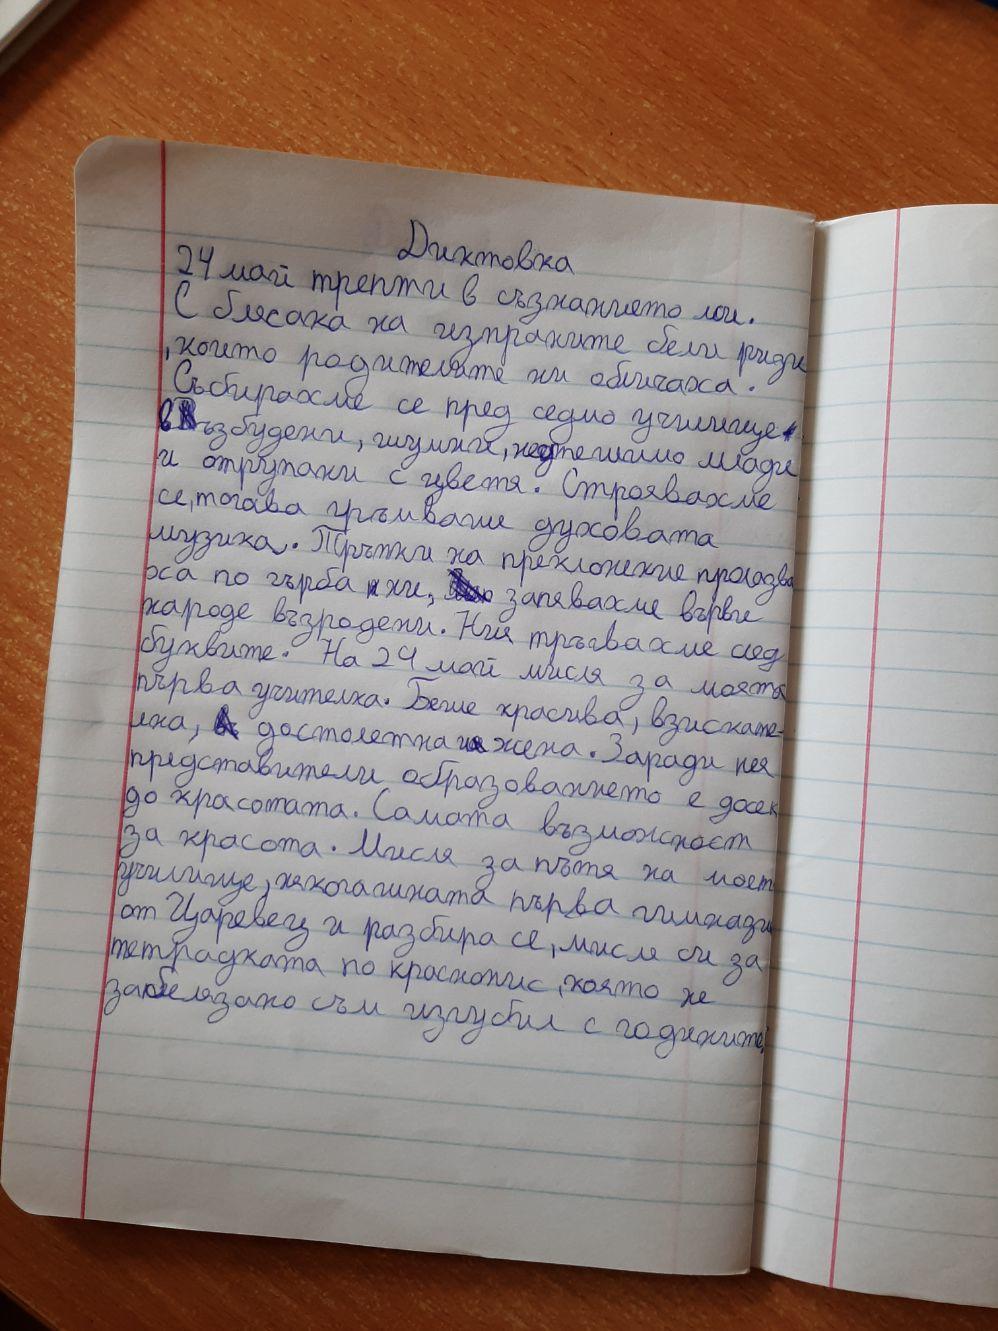 Диктовка
24 май трепти в съзнанието ми.
С блясака на изпраните бели ризи
,които родителите ни обичаха.
Събирахме се пред седмо училище
възбудени, шумни, неутешимо млади
и отрупани с цветя. Строявахме
се,тогава гръмваше духовата
музика. Тръпки на преклонение пролазва
ха по гърба ни, запявахме върви
народе възродени. Ние тръгвахме след
буквите. На 24 май мисля за моята
първа учителка. Беше красива, взискате-
лна, достолетна жена. Заради нея
представители образованието е досег
до красотата. Самата възможност
за красота. Мисля за пътя на моет
училище, някогашната първа гимназия
от Царевец и разбира се, мисля си за
тетрадката по краснопис ,която не
забелязано съм изгубил с годините.